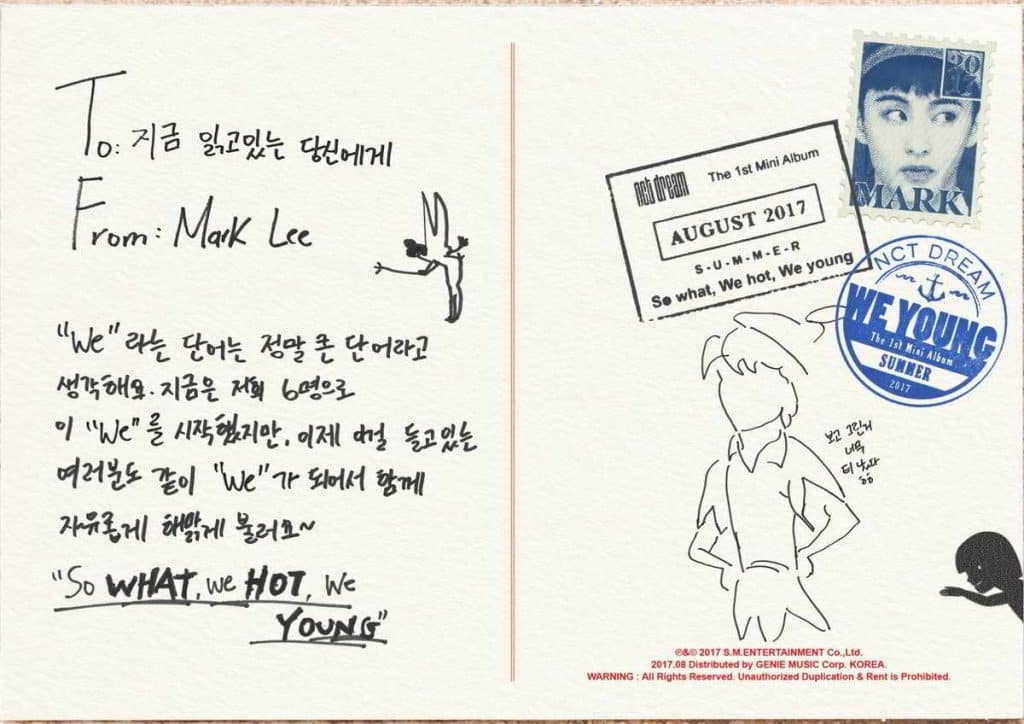 To: 지금 읽고있는 당신에게
From: Mark Lee
"We" 라는 단어는 정말 큰 단어라고
생각해요. 지금은 저희 6명으로
이 "We"를 시작했지만, 이제 이걸 듣고있는
여러분도 같이 "We"가 되어서 함께
자유롭게 해맑게 불러요~
"So WHAT, we HOT, We
YOUNG"
2017
MARK
nct dream The 1st Mini Album
AUGUST 2017
S-U-M-M-E-R
So what, We hot, We young
NCT DREAM
WE YOUNG
The 1st Mini Album
SUMMER
2017
보고 그린거
너무
티 난다
ㅎㅎ
℗&© 2017 S.M.ENTERTAINMENT Co.,Ltd.
2017.08 Distributed by GENIE MUSIC Corp. KOREA.
WARNING : All Rights Reserved. Unauthorized Duplication & Rent is Prohibited.